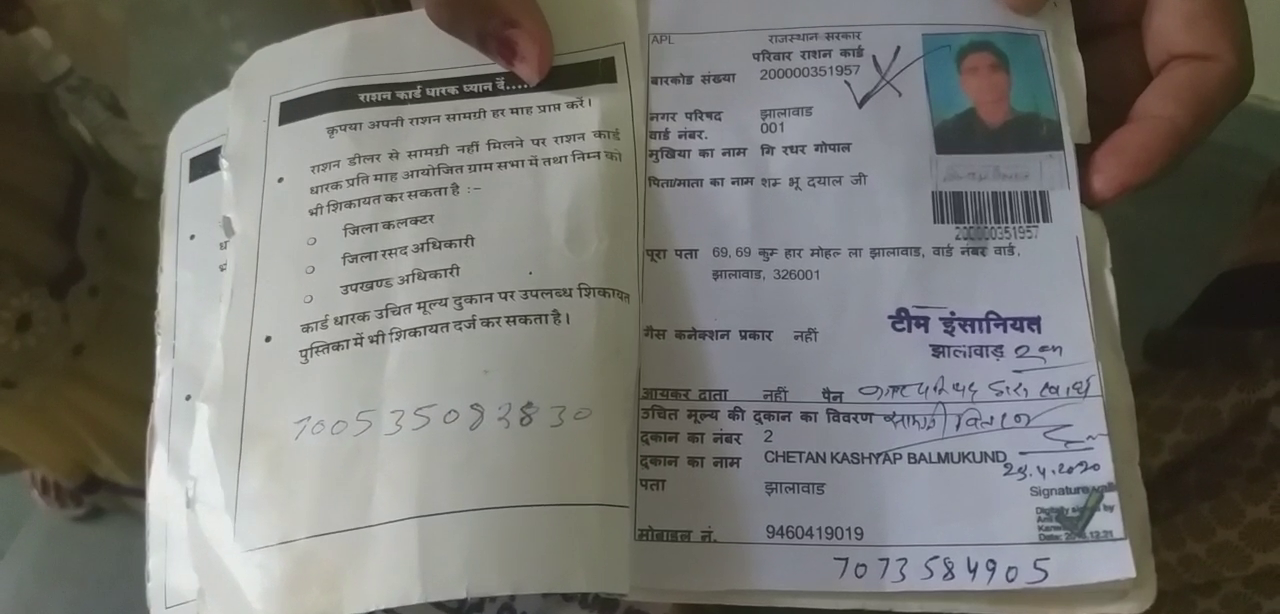 राशन कार्ड धारक ध्यान दें.....
कृपया अपनी राशन सामग्री हर माह प्राप्त करें।
राशन डीलर से सामग्री नहीं मिलने पर राशन कार्ड
धारक प्रति माह आयोजित ग्राम सभा में तथा निम्न को
भी शिकायत कर सकता है :–
जिला कलक्टर
जिला रसद अधिकारी
उपखण्ड अधिकारी
कार्ड धारक उचित मूल्य दुकान पर उपलब्ध शिकायत
पुस्तिका में भी शिकायत दर्ज कर सकता है।
APL
राजस्थान सरकार
परिवार राशन कार्ड
बारकोड संख्या 200000351957
नगर परिषद झालावाड
वार्ड नंबर. 001
मुखिया का नाम गि रधर गोपाल
पिता/माता का नाम शम भू दयाल जी
200000351957
पूरा पता 69, 69 कुम हार मोहल ला झालावाड, वार्ड नंबर वार्ड,
झालावाड, 326001
गैस कनेक्शन प्रकार नहीं
टीम इंसानियत
झालावाड़
आयकर दाता नहीं पैन
उचित मूल्य की दुकान का विवरण
दुकान का नंबर 2
दुकान का नाम CHETAN KASHYAP BALMUKUND
23.4.2020
पता झालावाड
Signature
मोबाइल नं. 9460419019
7073584905